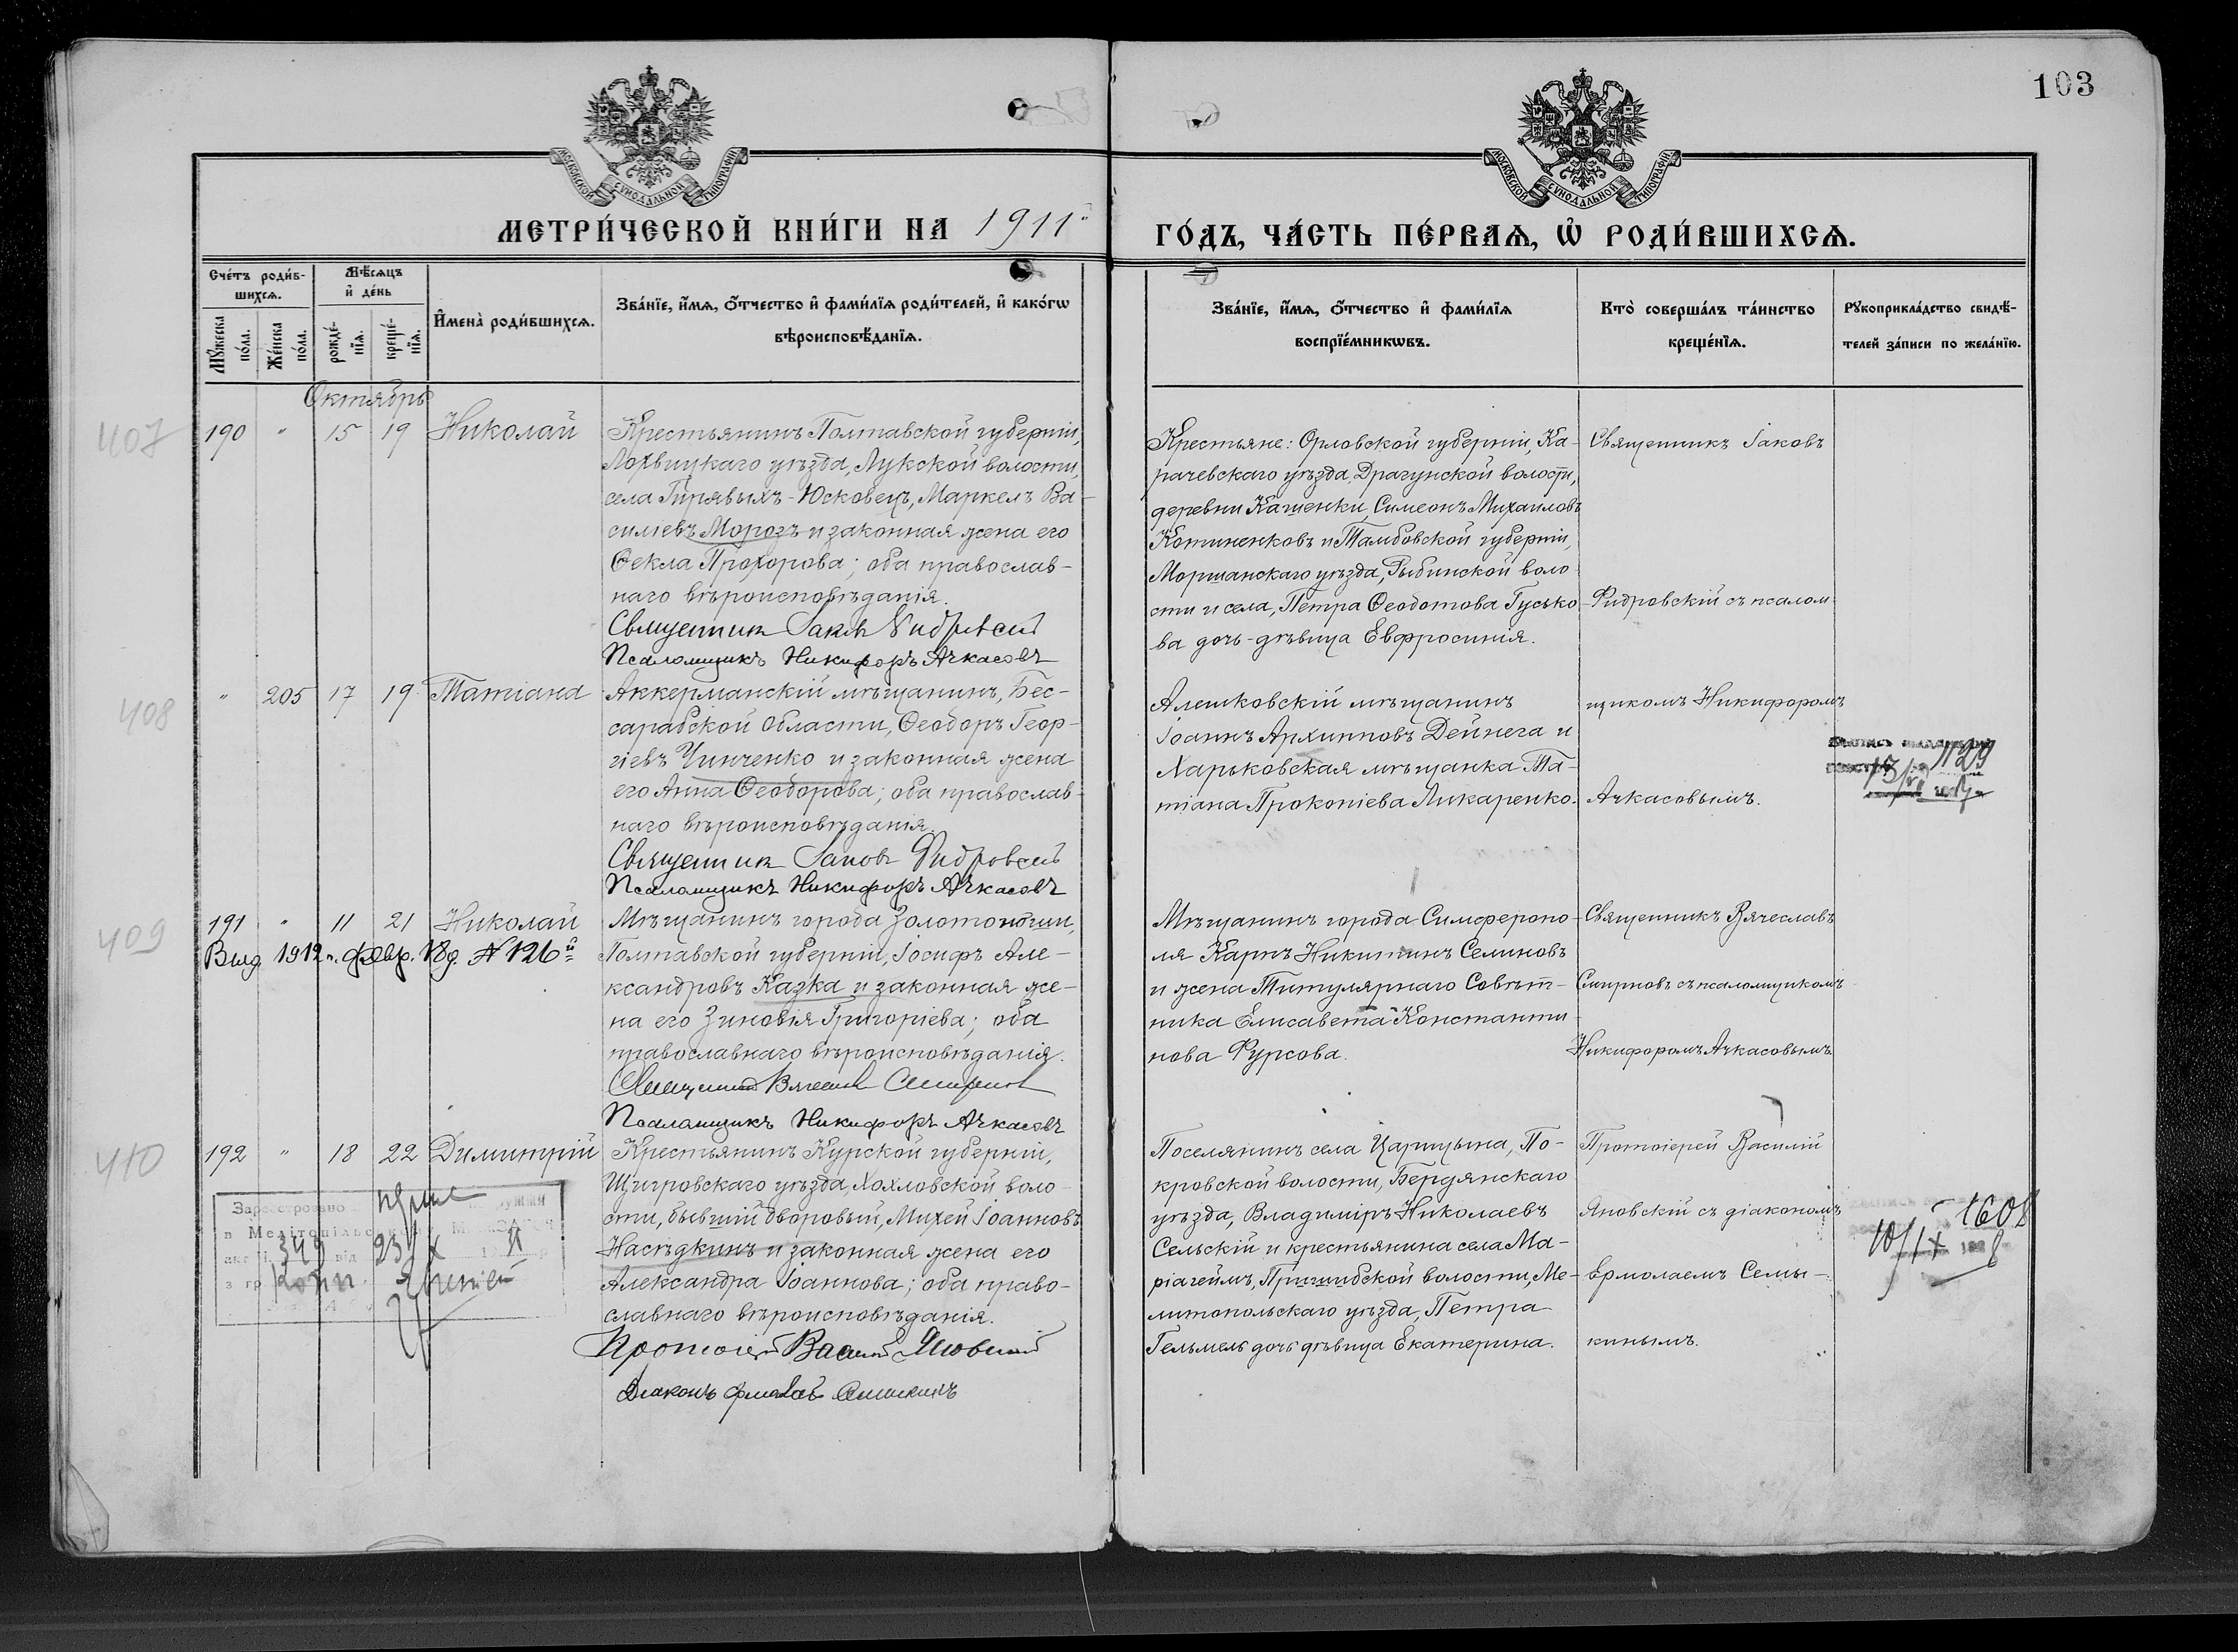 103
МОСКОВСКОЙ СУНОДАЛЬНОЙ ТИПОГРАФІИ
МОСКОВСКОЙ СУНОДАЛЬНОЙ ТИПОГРАФІИ
МЕТРИ́ЧЕСКОЙ КНИ́ГИ НА 1911
ГО́ДЪ, ЧА́СТЬ ПЕ́РВАѦ, Ѡ҆ РОДИ́ВШИХСѦ.
Сче́тъ роди́в-
шихсѧ.
Мꙋ́жеска по́ла.
Же́нска по́ла.
Мѣ́сѧцъ
и҆ де́нь
рожде́-нїѧ.
креще́-нїѧ.
И҆мена̀ роди́вшихсѧ.
Зва́нїе, и҆́мѧ, ѻ҆́тчество и҆ фами́лїѧ роди́телей, и҆ како́гѡ
вѣроисповѣ́данїѧ.
Зва́нїе, и҆́мѧ, ѻ҆́тчество и҆ фами́лїѧ
воспрїе́мникѡвъ.
Кто̀ соверша́лъ та́инство
креще́нїѧ.
Рꙋкоприкла́дство свидѣ́-
телей за́писи по жела́нїю.
Октябрь
407
190 " 15 19 Николай
Крестьянинъ Полтавской губерніи,
Лохвицкаго уѣзда, Лукской волости,
села Гирявыхъ-Юсковецъ, Маркелъ Ва-
силіевъ Морозъ и законная жена его
Ѳекла Прохорова; оба православ-
наго вѣроисповѣданія.
Священник Іаков Фидровский
Псаломщикъ Никифоръ Ачкасовъ
Крестьяне: Орловской губерніи, Ка-
рачевскаго уѣзда, Драгунской волости,
деревни Кашенки, Симеонъ Михаиловъ
Котиненковъ и Тамбовской губерніи,
Моршанскаго уѣзда, Рыбинской воло
сти и села, Петра Ѳеодотова Гусько-
ва дочь-дѣвица Евфросинія.
Священникъ Іаковъ
Фидровскій съ псалом-
408
" 205 17 19 Татіана
Аккерманскій мѣщанинъ, Бес-
сарабской области, Ѳеодоръ Геор-
гіевъ Чинченко и законная жена
его Анна Ѳеодорова; оба православ-
наго вѣроисповѣданія.
Священник Іаков Фидровский
Псаломщикъ Никифоръ Ачкасовъ
Алешковскій мѣщанинъ
Іоаннъ Архипповъ Дейнега и
Харьковская мѣщанка Та-
тіана Прокопіева Ликаренко.
щикомъ Никифоромъ
Ачкасовымъ.
1129
409
191 " 11 21 Николай
Выд. 1912 г. февр. 18 д. № 126й
Мѣщанинъ города Золотоноши,
Полтавской губерніи, Іосифъ Але-
ксандровъ Казка и законная же-
на его Зиновія Григоріева; оба
православнаго вѣроисповѣданія.
Священник Вячеслав Смирнов
Псаломщикъ Никифоръ Ачкасовъ
Мѣщанинъ города Симферопо-
ля Карпъ Никитинъ Семиновъ
и жена Титулярнаго Совѣт-
ника Елисавета Константи-
нова Фурсова.
Священникъ Вячеславъ
Смирновъ съ псаломщикомъ
Никифоромъ Ачкасовымъ.
410
192 " 18 22 Димитрій
Зареєстровано
в Мелітопільськ
349 від 23/X
Крестьянинъ Курской губерніи,
Щигровскаго уѣзда, Хохловской воло-
сти, бывшій дворовый, Михей Іоанновъ
Насѣдкинъ и законная жена его
Александра Іоаннова; оба право-
славнаго вѣроисповѣданія.
Протоіерей Василий Яновский
Діаконъ Ермолай Семыкинъ
Поселянинъ села Царицына, По-
кровской волости, Бердянскаго
уѣзда, Владиміръ Николаевъ
Сельскій и крестьянина села Ма-
ріагеймъ, Пришибской волости, Ме-
литопольскаго уѣзда, Петра
Гельмель дочь дѣвица Екатерина.
Протоіерей Василій
Яновскій съ діакономъ
Ермолаемъ Семы-
кинымъ.
1608
10/IX